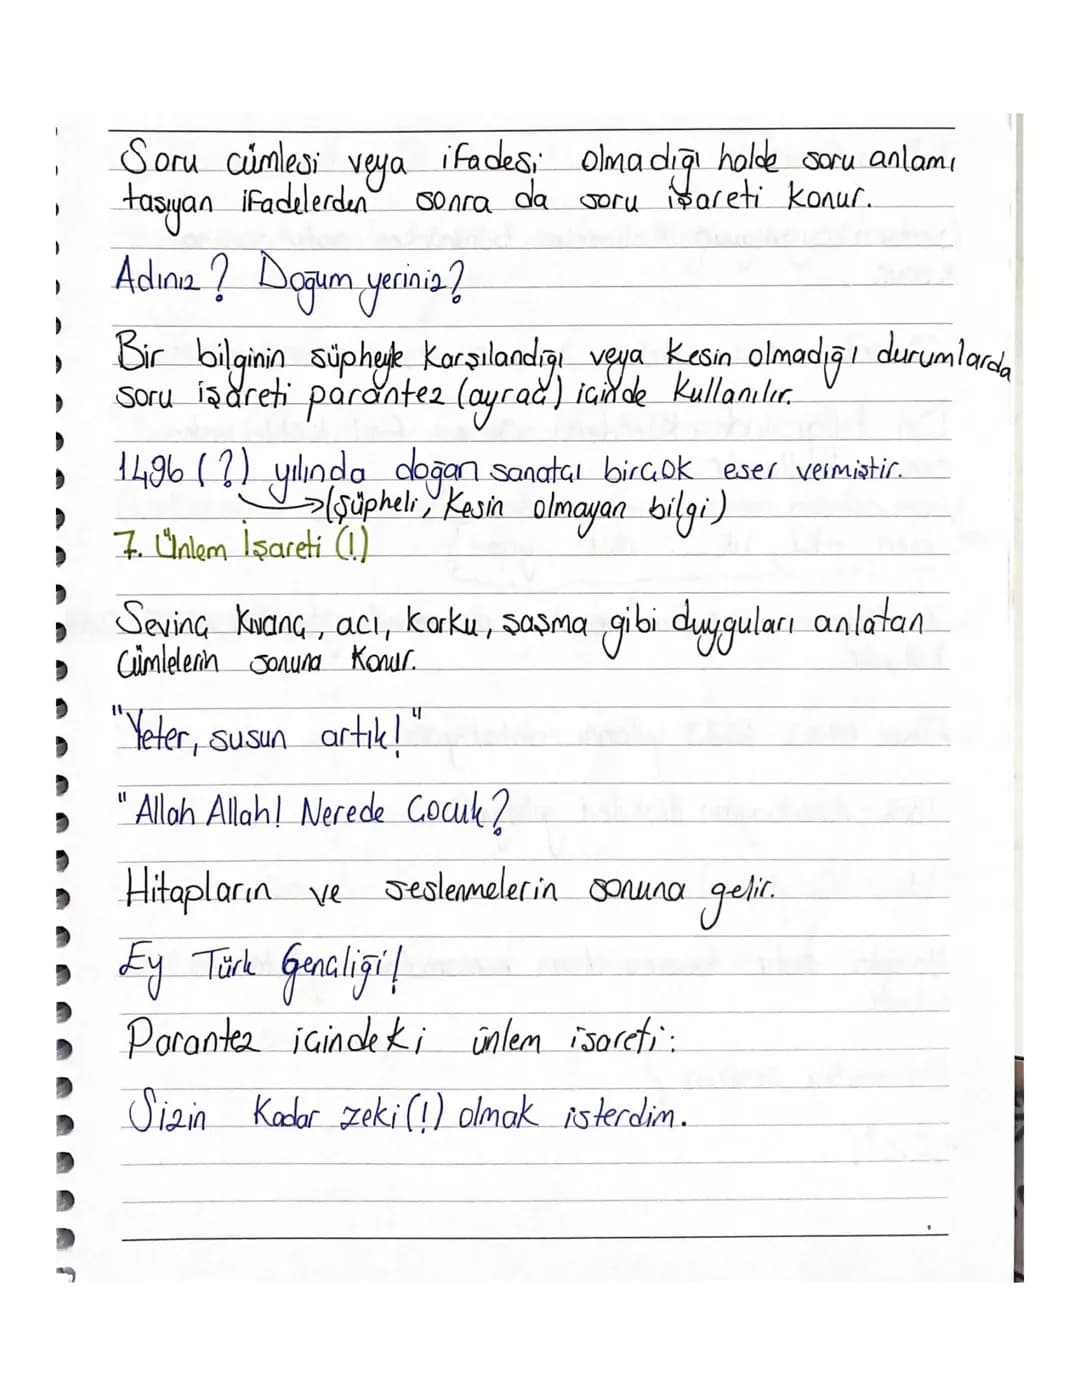 Soru cümlesi veya ifadesi olmadığı halde soru anlamı
taşıyan ifadelerden sonra da soru işareti konur.
Adınız? Doğum yeriniz?
Bir bilginin şüpheyle karşılandığı veya kesin olmadığı durumlarda
soru işareti parantez (ayraç) içinde kullanılır.
1496 (?) yılında doğan sanatçı birçok eser vermiştir.
→(Şüpheli, kesin olmayan bilgi)
7. Ünlem İşareti (!)
Sevinç kıvanç, acı, korku, şaşma gibi duyguları anlatan
cümlelerin sonuna konur.
"Yeter, susun artık!"
"Allah Allah! Nerede çocuk?
Hitapların ve seslenmelerin sonuna gelir.
Ey Türk Gençliği!
Parantez içindeki ünlem isareti:
Sizin kadar zeki(!) olmak isterdim.